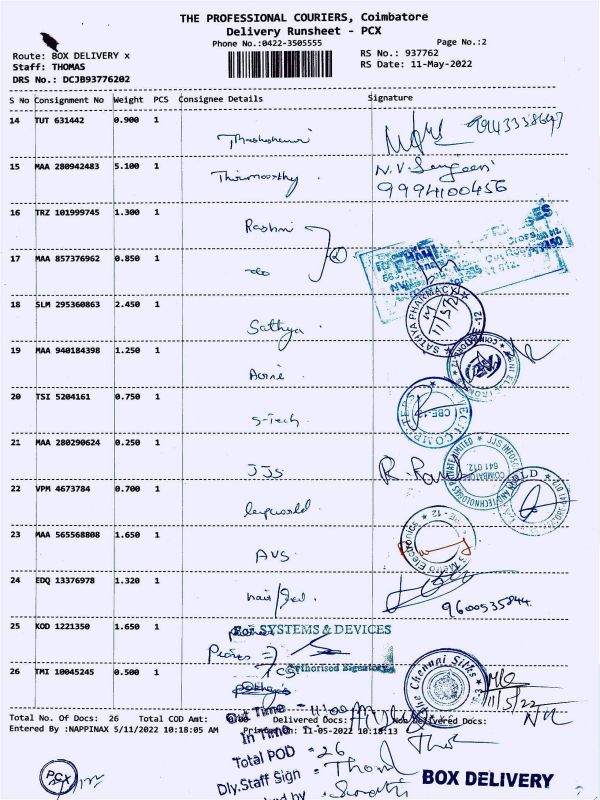 THE PROFESSIONAL COURIERS, Coimbatore
Delivery Runsheet - PCX
Phone No.:0422-3505555
Page No.:2
Route: BOX DELIVERY x
RS No.: 937762
Staff: THOMAS
RS Date: 11-May-2022
DRS No.: DCJB93776202
S No Consignment No Weight PCS Consignee Details Signature
14 TUT 631442 0.900 1
15 MAA 280942483 5.100 1 Thirumoorthy
9994100456
16 TRZ 101999745 1.300 1 Rashmi
17 MAA 857376962 0.850 1 do
18 SLM 295360863 2.450 1 Sathya
SATHYA PHARMACY
19 MAA 940184398 1.250 1
20 TSI 5204161 0.750 1 S-Tech
21 MAA 280290624 0.250 1 JJS
22 VPM 4673784 0.700 1
23 MAA 565568808 1.650 1 AVS
Metro Electronics
24 EDQ 13376978 1.320 1
9600535844
25 KOD 1221350 1.650 1
For SYSTEMS & DEVICES
Authorised Signatory
26 TMI 10045245 0.500 1 TCS
The Chennai Silks
11/5/22
Total No. Of Docs: 26 Total COD Amt: Delivered Docs: Non Delivered Docs:
Entered By :NAPPINAX 5/11/2022 10:18:05 AM Printed on: 11-05-2022 10:18:13
Out Time = 11:00
In Time =
Total POD = 26
Dly.Staff Sign
PCX
BOX DELIVERY